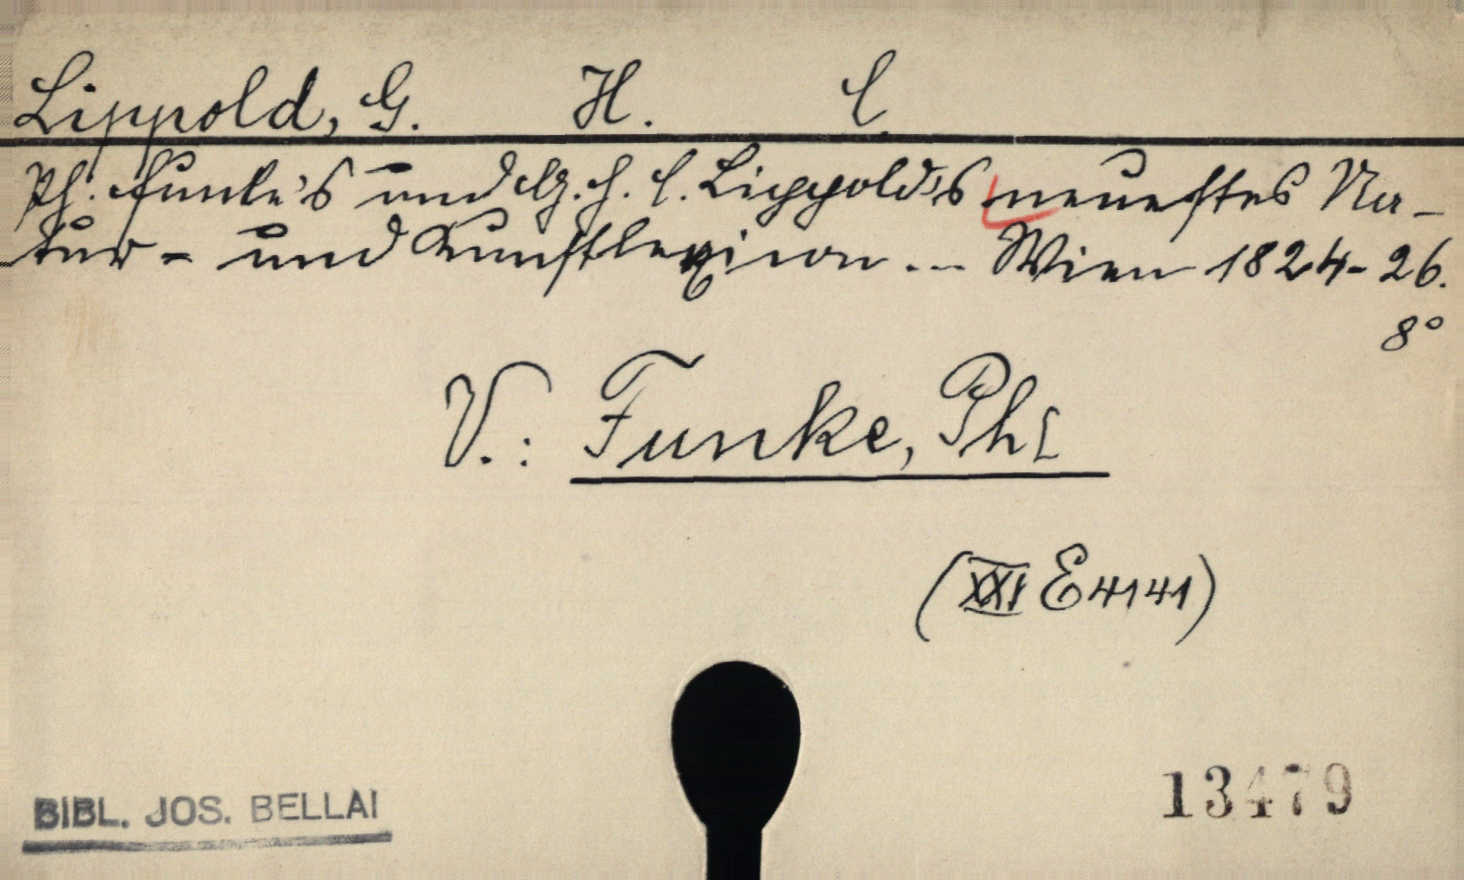 Lippold, G. H. C.
Ph. Funke's und G. H. C. Lippold's neuestes Na-
tur- und Kunstlexicon ... Wien 1824-26.
8°
V.: Funke, Ph.
(XXI E 4141)
BIBL. JOS. BELLAI
13479